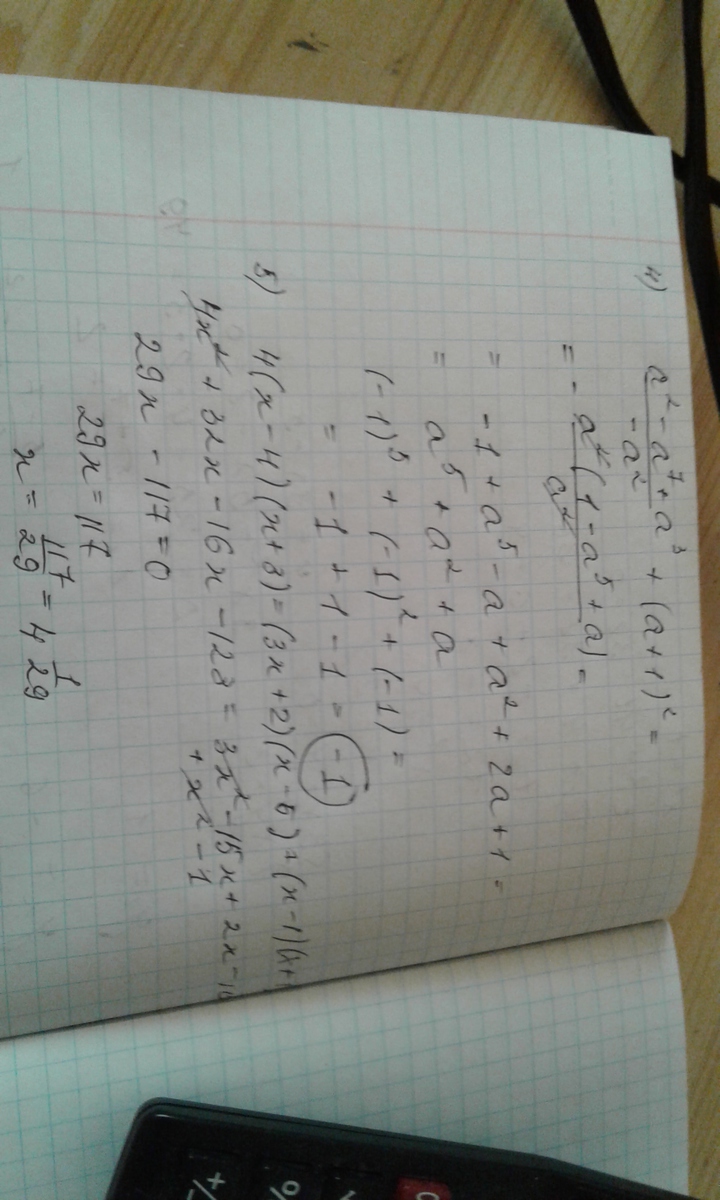 4) (a² - a⁷ + a³)/(-a²) + (a+1)² =
= - a²(1 - a⁵ + a)/a² =
= -1 + a⁵ - a + a² + 2a + 1 =
= a⁵ + a² + a
(-1)⁵ + (-1)² + (-1) =
= -1 + 1 - 1 = -1
5) 4(x - 4)(x + 8) = (3x + 2)(x - 5) + (x - 1)(x+1
4x² + 32x - 16x - 128 = 3x² - 15x + 2x - 10
+ x² - 1
29x - 117 = 0
29x = 117
x = 117/29 = 4 1/29
0
%
+/-